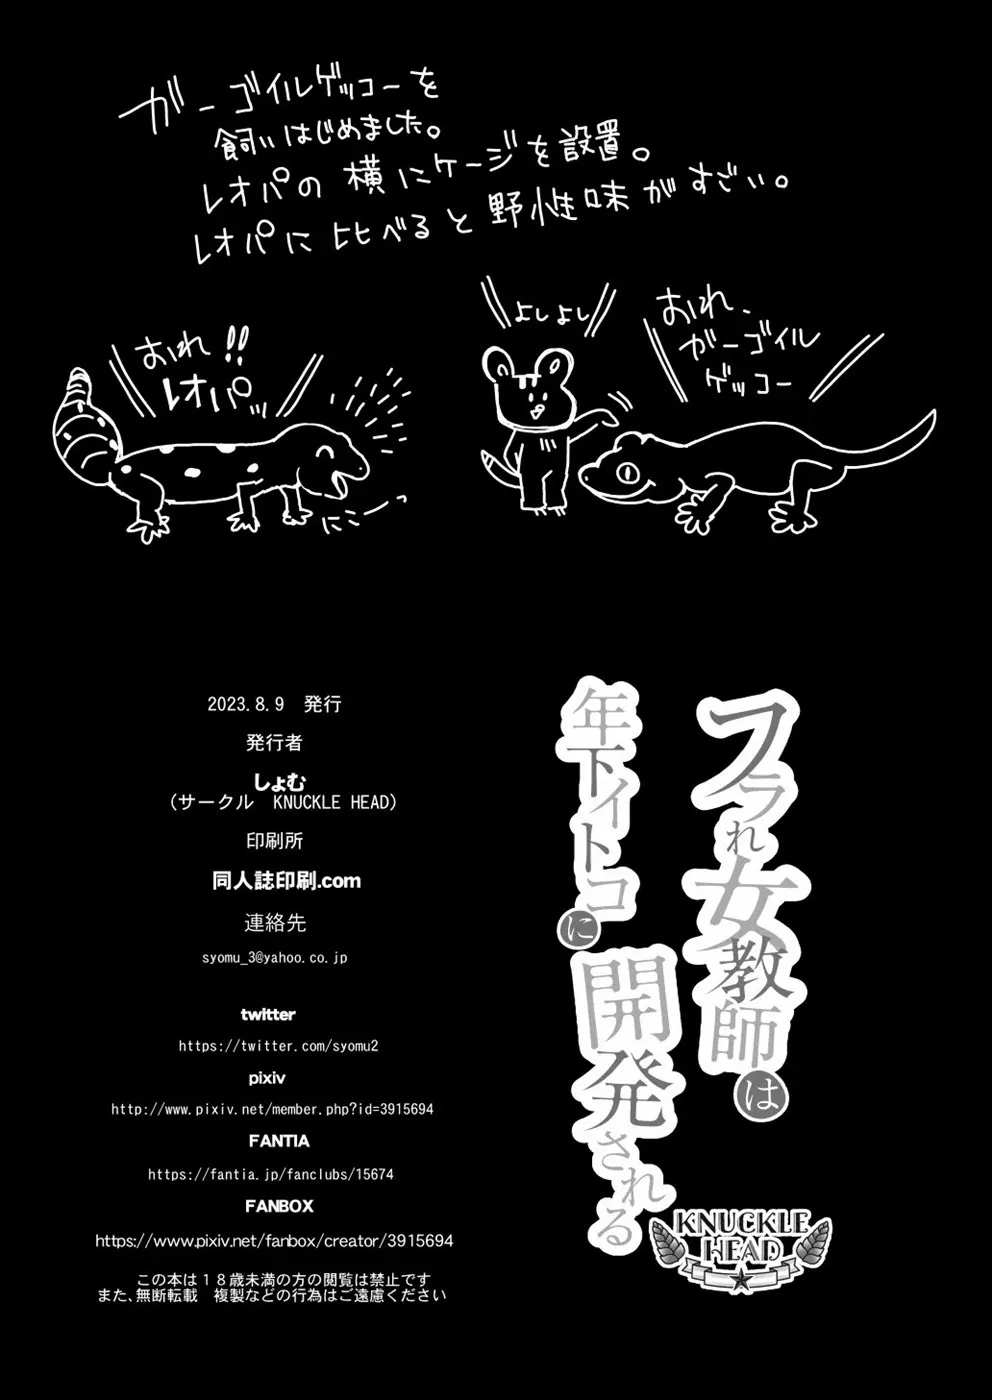 ガーゴイルゲッコーを
飼いはじめました。
レオパの横にケージを設置。
レオパに比べると野性味がすごい。
おれ!!
レオパッ
にこーっ
よしよし
おれ、
ガーゴイル
ゲッコー
2023.8.9　発行
発行者
しょむ
（サークル　KNUCKLE HEAD）
印刷所
同人誌印刷.com
連絡先
syomu_3@yahoo.co.jp
twitter
https://twitter.com/syomu2
pixiv
http://www.pixiv.net/member.php?id=3915694
FANTIA
https://fantia.jp/fanclubs/15674
FANBOX
https://www.pixiv.net/fanbox/creator/3915694
この本は１８歳未満の方の閲覧は禁止です
また、無断転載　複製などの行為はご遠慮ください
フラれ女教師は
年下イトコに
開発される
KNUCKLE
HEAD